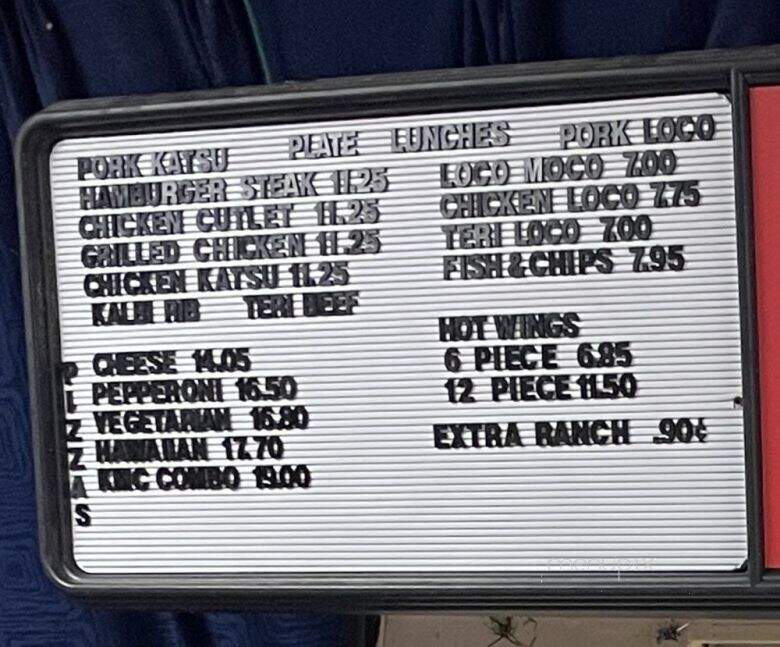 PLATE LUNCHES
PORK KATSU
HAMBURGER STEAK 11.25
CHICKEN CUTLET 11.25
GRILLED CHICKEN 11.25
CHICKEN KATSU 11.25
KALBI RIB TERI BEEF
PORK LOCO
LOCO MOCO 7.00
CHICKEN LOCO 7.75
TERI LOCO 7.00
FISH & CHIPS 7.95
PIZZAS
CHEESE 14.05
PEPPERONI 16.50
VEGETARIAN 16.80
HAWAIIAN 17.70
KMC COMBO 19.00
HOT WINGS
6 PIECE 6.85
12 PIECE 11.50
EXTRA RANCH .90¢